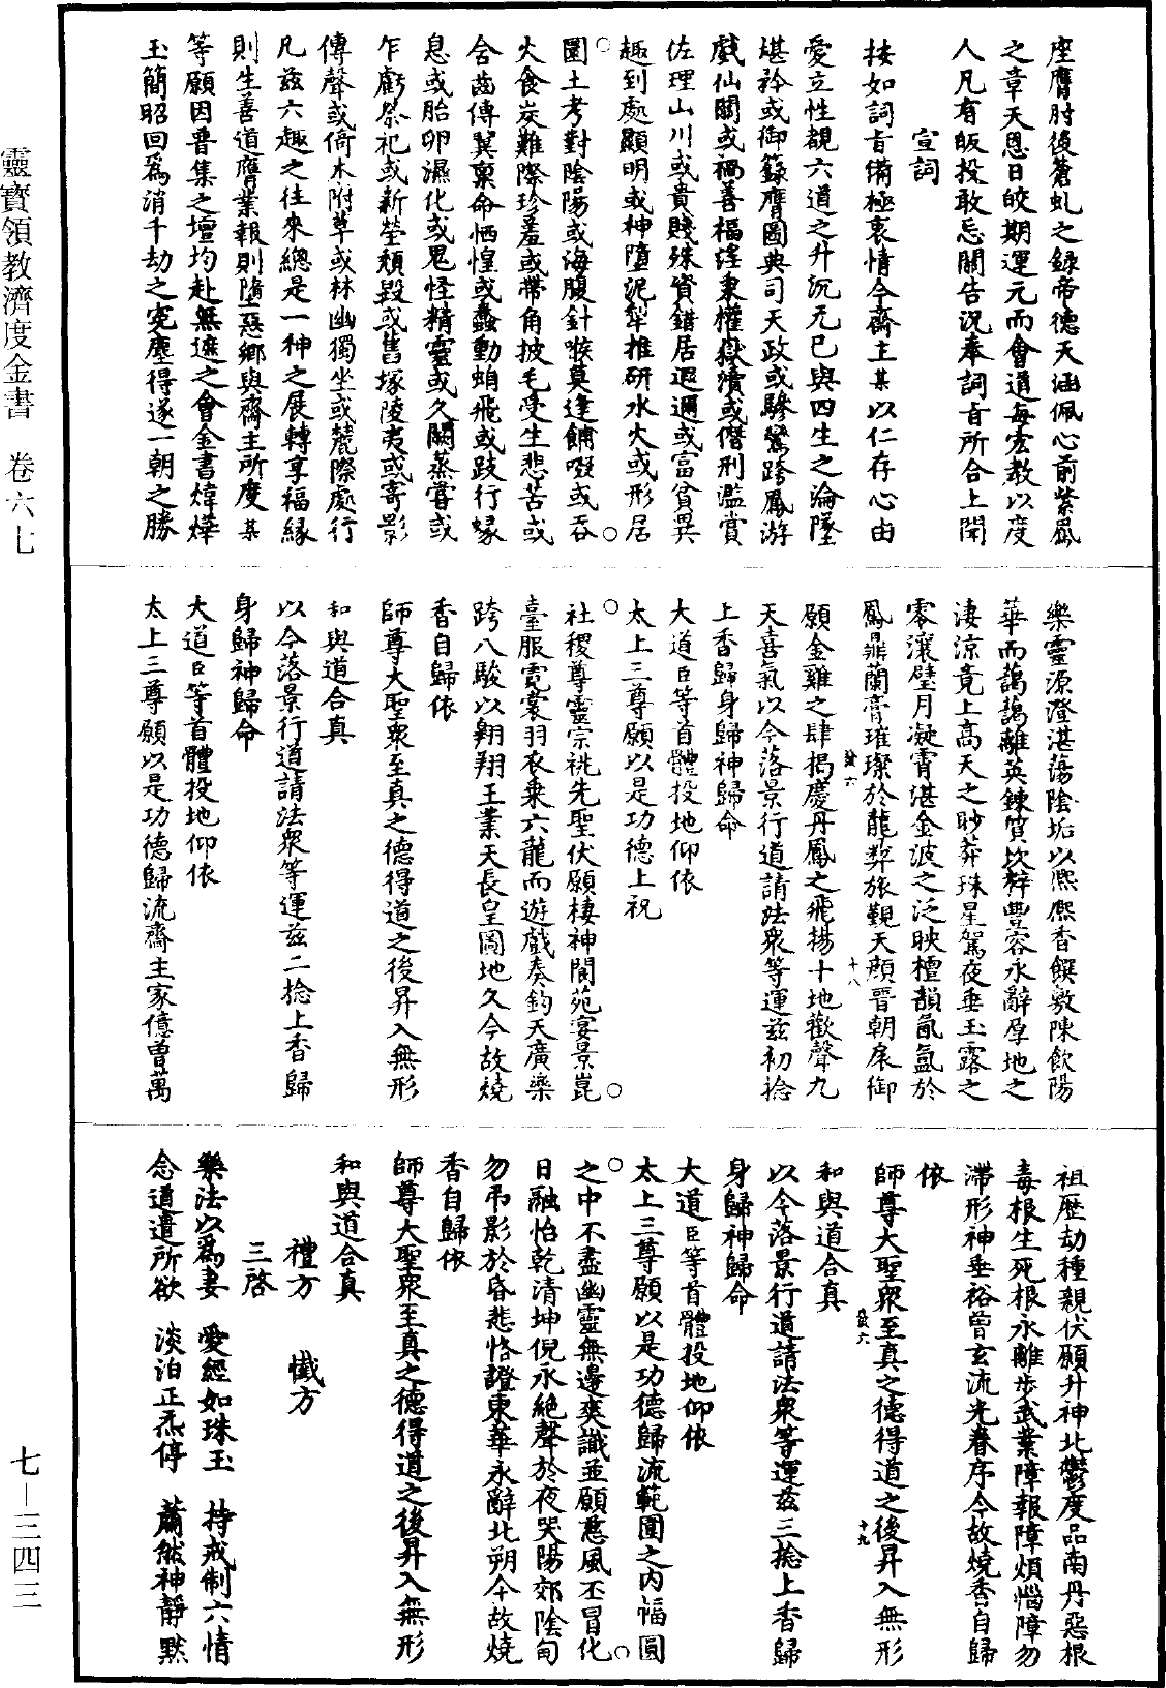 座膺肘後蒼虬之籙帝德天涵佩心前紫鳳
之章天恩日皎期運元而會道每宏教以度
人凡有皈投敢忘關告況奉詞旨所合上聞
宣詞
按如詞旨備極衷情今齋主某以仁存心由
愛立性覩六道之升沉无已與四生之淪墜
堪矜或御籙膺圖典司天政或驂鸞跨鳳游
戲仙關或禍善福淫秉權嶽瀆或僭刑濫賞
佐理山川或貴賤殊資錯居遐邇或富貧異
趣到處顯明或神墮泥犁推研水火或形居
圜土考對陰陽或海腹針喉莫逢餔啜或吞
火食炭難際珍羞或帶角披毛受生悲苦或
含齒傳翼稟命恓惶或蠢動蛸飛或跂行蝝
息或胎卵濕化或鬼怪精靈或久闕蒸嘗或
乍虧祭祀或新塋頹毀或舊塚陵夷或寄影
傳聲或倚木附草或林幽獨坐或麓際處行
凡茲六趣之往來總是一神之展轉享福緣
則生善道膺業報則墮惡鄉與齋主所度某
等願因普集之壇均赴無遮之會金書煒燁
玉簡昭回為消千劫之宼塵得遂一朝之勝
樂靈源澄湛蕩陰垢以熙熙香饌敷陳飲陽
華而藹藹離英鍊質坎粹豐容永辭厚地之
淒涼竟上高天之眇莽珠星駕夜垂玉露之
零瀼璧月凝霄湛金波之泛映檀韻氤氳於
鳳鼎蘭膏璀璨於龍葬旅覲天顔晉朝扆御
願金雞之肆揭慶丹鳳之飛揚十地歡聲九
天喜氣以今落景行道請法眾等運茲初捻
上香歸身歸神歸命
大道臣等首體投地仰依
太上三尊願以是功德上祝
社稷尊靈宗祧先聖伏願棲神閬苑宴景崑
臺服霓裳羽衣乘六龍而遊戲奏鈞天廣樂
跨八駿以翱翔王業天長皇圖地久今故燒
香自歸依
師尊大聖眾至真之德得道之後昇入無形
和與道合真
以今落景行道請法眾等運茲二捻上香歸
身歸神歸命
大道臣等首體投地仰依
太上三尊願以是功德歸流齋主家億曾萬
祖歷劫種親伏願升神北鬱度品南丹惡根
毒根生死根永離步武業障報障煩惱障勿
滯形神垂裕曾玄流光眷序今故燒香自歸
依
師尊大聖眾至真之德得道之後昇入無形
和與道合真
以今落景行道請法眾等運茲三捻上香歸
身歸神歸命
大道臣等首體投地仰依
太上三尊願以是功德歸流範圍之內幅圓
之中不盡幽靈無邊爽識並願慈風丕冒化
日融怡乾清坤倪永絕聲於夜哭陽郊陰甸
勿吊影於昏悲恪證東華永辭北朔今故燒
香自歸依
師尊大聖眾至真之德得道之後昇入無形
和與道合真
禮方 懺方
三啓
樂法以為妻 愛經如珠玉 持戒制六情
念道遣所欲 淡泊正炁停 蕭然神靜默
靈寶領教濟度金書 卷六七
七—三四三